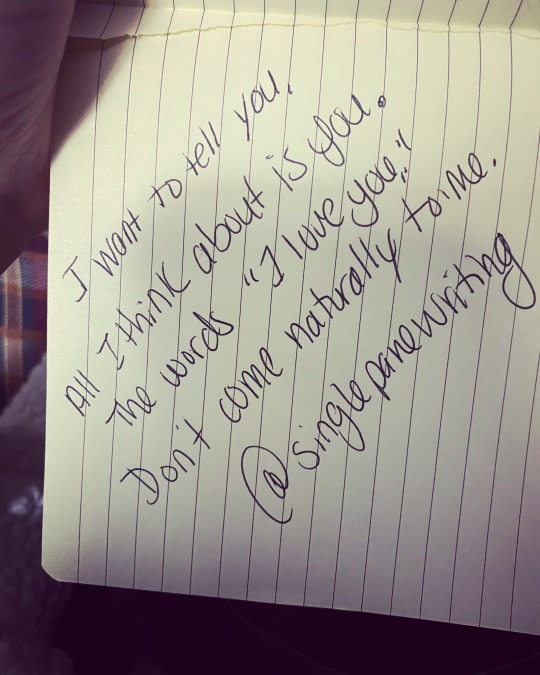 I want to tell you,
All I think about is you.
The words "I love you."
Don't come naturally to me.
@singlepanewriting